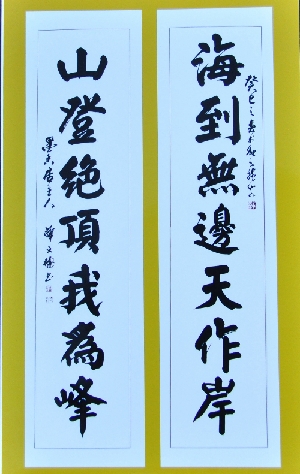 海到無邊天作岸
癸巳之春
山登絕頂我為峰